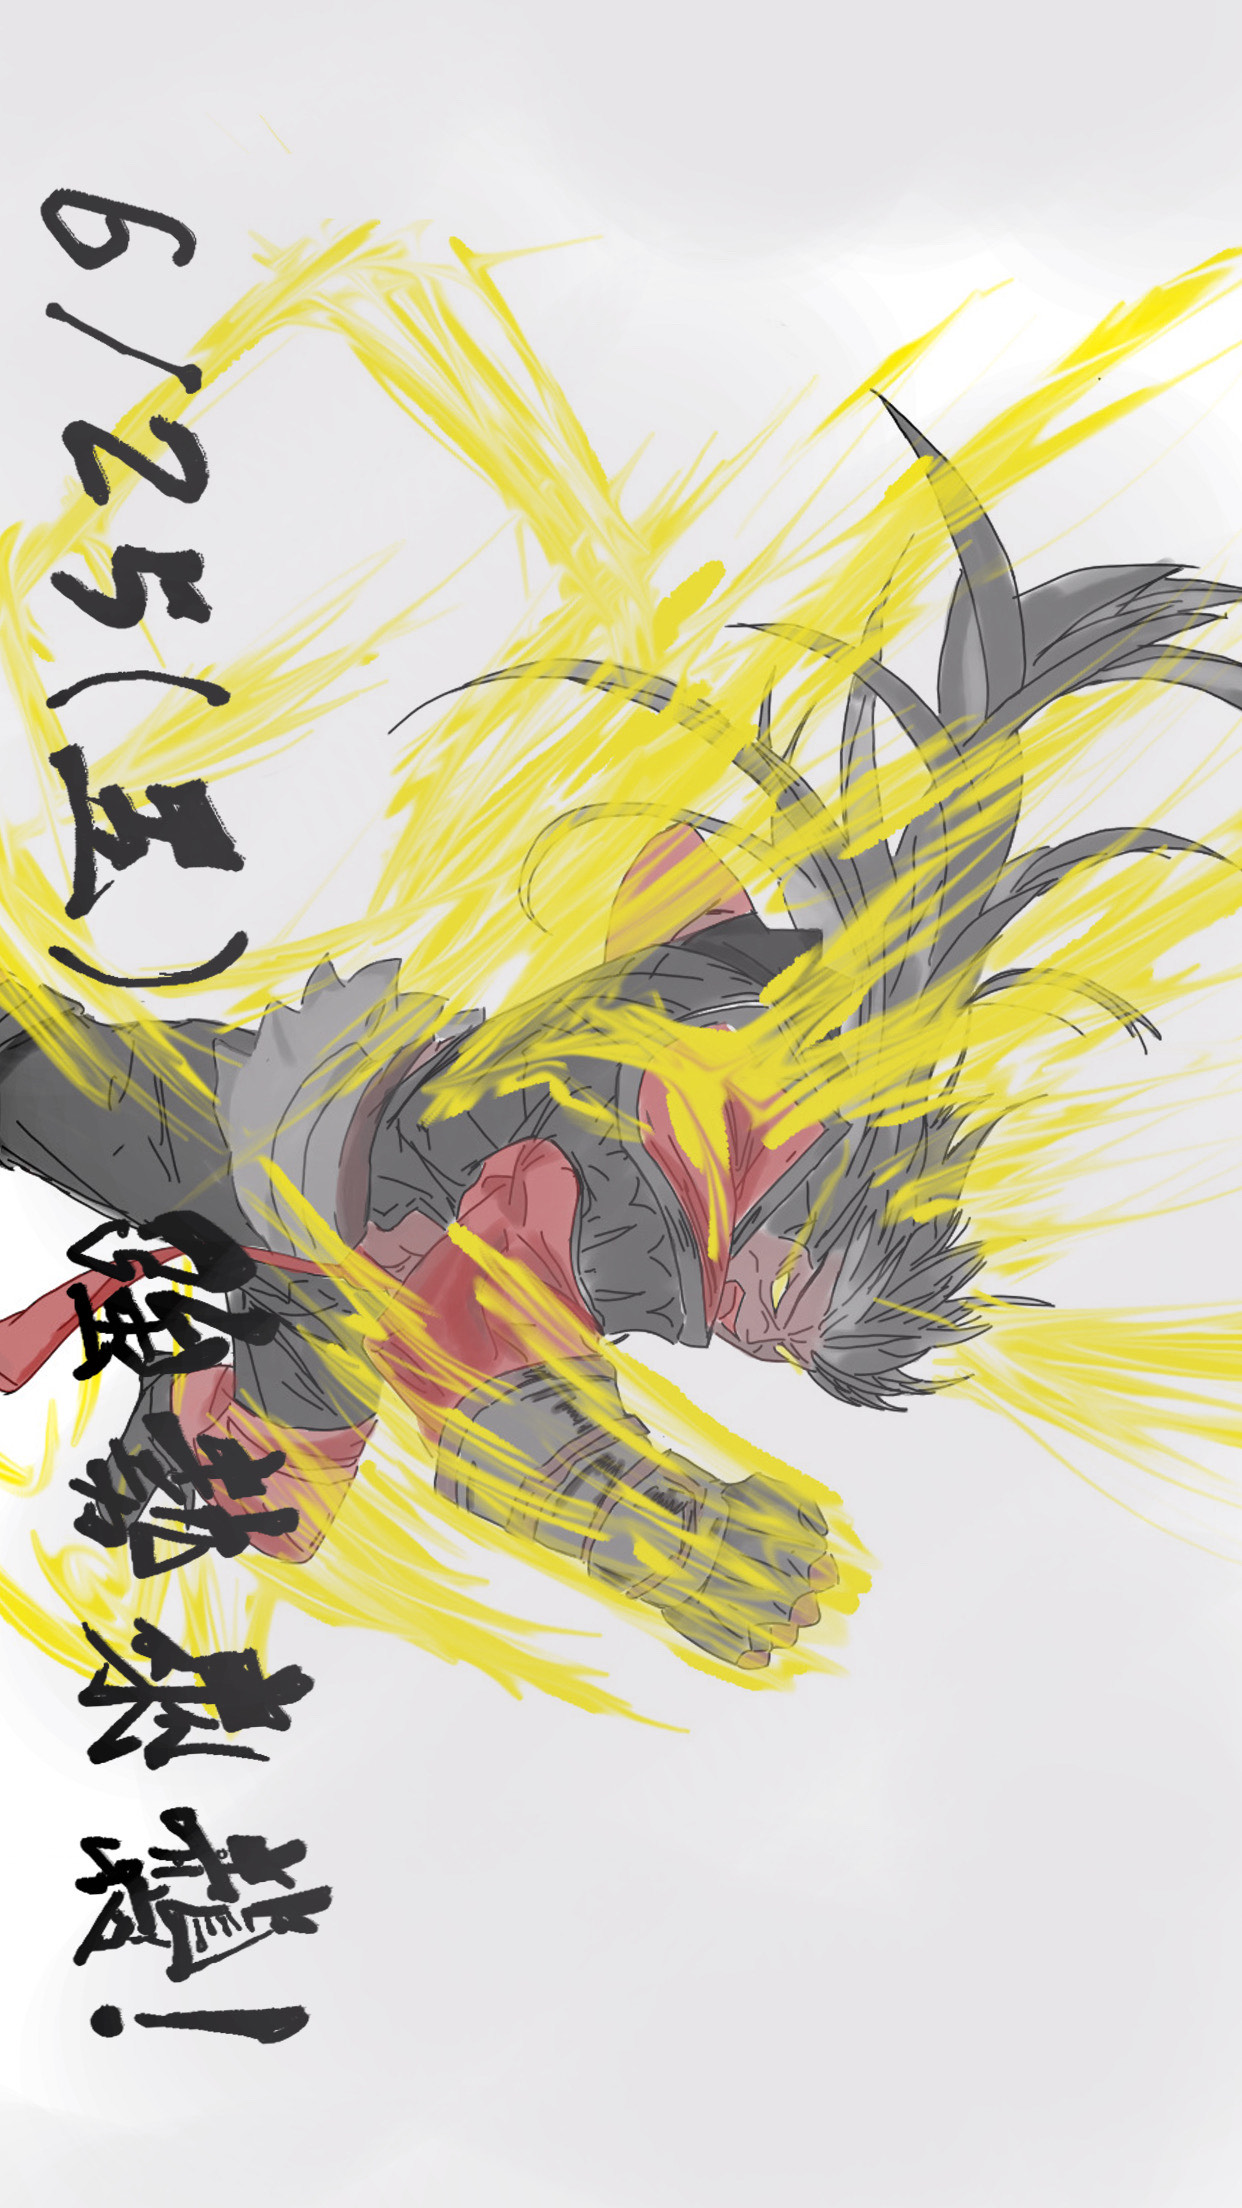 6/25(五) 強勢來襲!